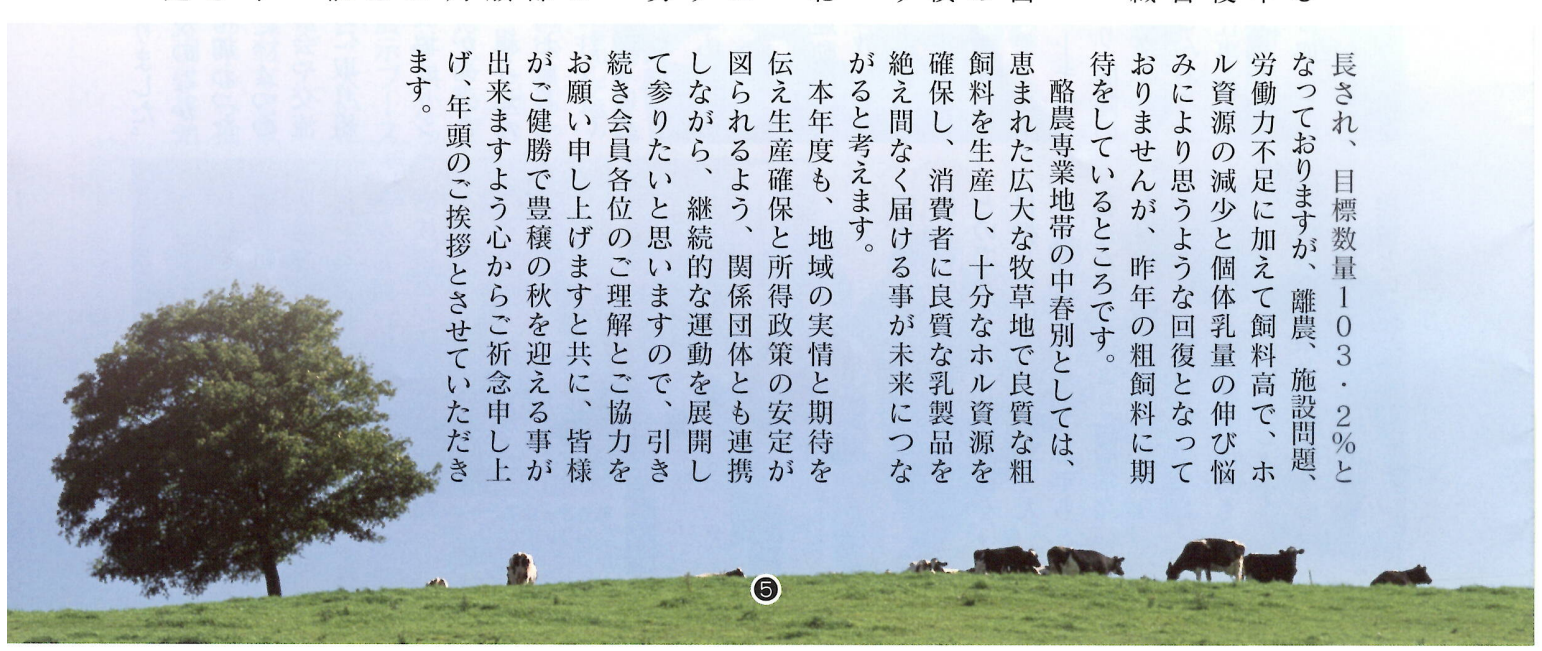 長され、目標数量103・2%と
なっておりますが、離農、施設問題、
労働力不足に加えて飼料高で、ホ
ル資源の減少と個体乳量の伸び悩
みにより思うような回復となって
おりませんが、昨年の粗飼料に期
待をしているところです。
酪農専業地帯の中春別としては、
恵まれた広大な牧草地で良質な粗
飼料を生産し、十分なホル資源を
確保し、消費者に良質な乳製品を
絶え間なく届ける事が未来につな
がると考えます。
本年度も、地域の実情と期待を
伝え生産確保と所得政策の安定が
図られるよう、関係団体とも連携
しながら、継続的な運動を展開し
て参りたいと思いますので、引き
続き会員各位のご理解とご協力を
お願い申し上げますと共に、皆様
がご健勝で豊穣の秋を迎える事が
出来ますよう心からご祈念申し上
げ、年頭のご挨拶とさせていただき
ます。
5